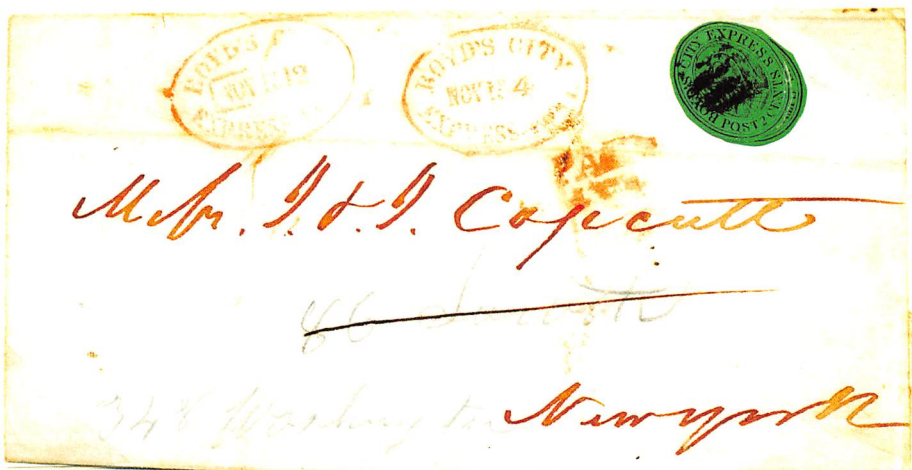 BOYD'S
NOV 19
EXPRESS
BOYD'S CITY
NOV 15 4
EXPRESS POST
BOYD'S CITY EXPRESS POST 2 CENTS
Messrs. J. & J. Copcutt
348 Washington
New york